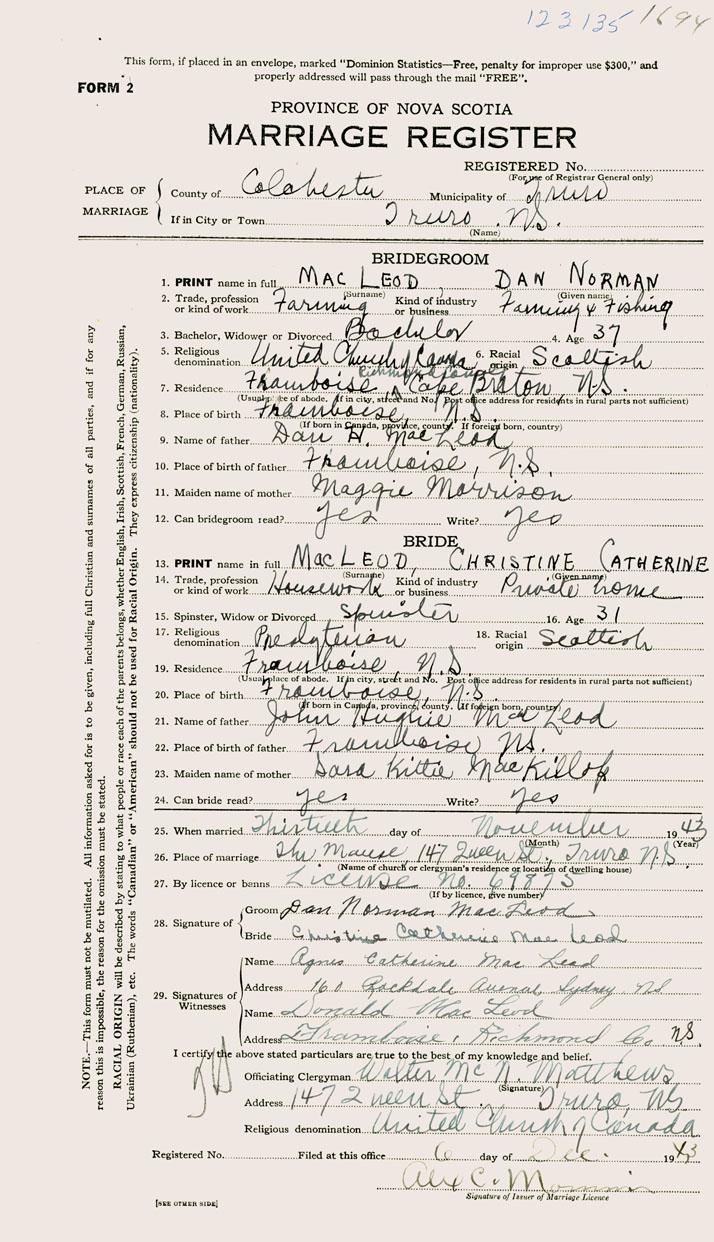 123135 1694
This form, if placed in an envelope, marked "Dominion Statistics—Free, penalty for improper use $300," and
properly addressed will pass through the mail "FREE".
FORM 2
PROVINCE OF NOVA SCOTIA
MARRIAGE REGISTER
REGISTERED No.
(For use of Registrar General only)
PLACE OF MARRIAGE
County of Colchester Municipality of Truro
If in City or Town Truro N.S.
(Name)
BRIDEGROOM
1. PRINT name in full MAC LEOD, DAN NORMAN
(Surname) (Given name)
2. Trade, profession or kind of work Farming Kind of industry or business Farming & Fishing
3. Bachelor, Widower or Divorced Bachelor 4. Age 37
5. Religious denomination United Church of Canada 6. Racial origin Scottish
Richmond County
7. Residence Framboise, Cape Braton, N.S.
(Usual place of abode. If in city, street and No. Post office address for residents in rural parts not sufficient)
8. Place of birth Framboise, N.S.
(If born in Canada, province, county. If foreign born, country)
9. Name of father Dan H. MacLeod
10. Place of birth of father Framboise, N.S.
11. Maiden name of mother Maggie Morrison
12. Can bridegroom read? Yes Write? Yes
BRIDE
13. PRINT name in full MACLEOD, CHRISTINE CATHERINE
(Surname) (Given name)
14. Trade, profession or kind of work Housework Kind of industry or business Private home
15. Spinster, Widow or Divorced Spinster 16. Age 31
17. Religious denomination Presbyterian 18. Racial origin Scottish
19. Residence Framboise, N.S.
(Usual place of abode. If in city, street and No. Post office address for residents in rural parts not sufficient)
20. Place of birth Framboise, N.S.
(If born in Canada, province, county. If foreign born, country)
21. Name of father John Hughie MacLeod
22. Place of birth of father Framboise NS.
23. Maiden name of mother Sara Kittie MacKillop
24. Can bride read? Yes Write? Yes
25. When married Thirtieth day of November 1943
(Month) (Year)
26. Place of marriage The Manse, 147 Queen St., Truro N.S.
(Name of church or clergyman's residence or location of dwelling house)
27. By licence or banns License No. 69875
(If by licence, give number)
28. Signature of
Groom Dan Norman MacLeod
Bride Christine Catherine Mac Leod
29. Signatures of Witnesses
Name Agnes Catherine Mac Leod
Address 160 Rockdale Avenue, Sydney NS
Name Donald MacLeod
Address Framboise, Richmond Co. NS.
I certify the above stated particulars are true to the best of my knowledge and belief.
Officiating Clergyman Walter Mc N. Matthews
(Signature)
Address 147 Queen St. Truro, NS
Religious denomination United Church of Canada
Registered No. Filed at this office 6 day of Dec. 1943
Alex C.
Signature of Issuer of Marriage Licence
[SEE OTHER SIDE]
NOTE.—This form must not be mutilated. All information asked for is to be given, including full Christian and surnames of all parties, and if for any
reason this is impossible, the reason for the omission must be stated.
RACIAL ORIGIN will be described by stating to what people or race each of the parents belongs, whether English, Irish, Scottish, French, German, Russian,
Ukrainian (Ruthenian), etc. The words "Canadian" or "American" should not be used for Racial Origin. They express citizenship (nationality).